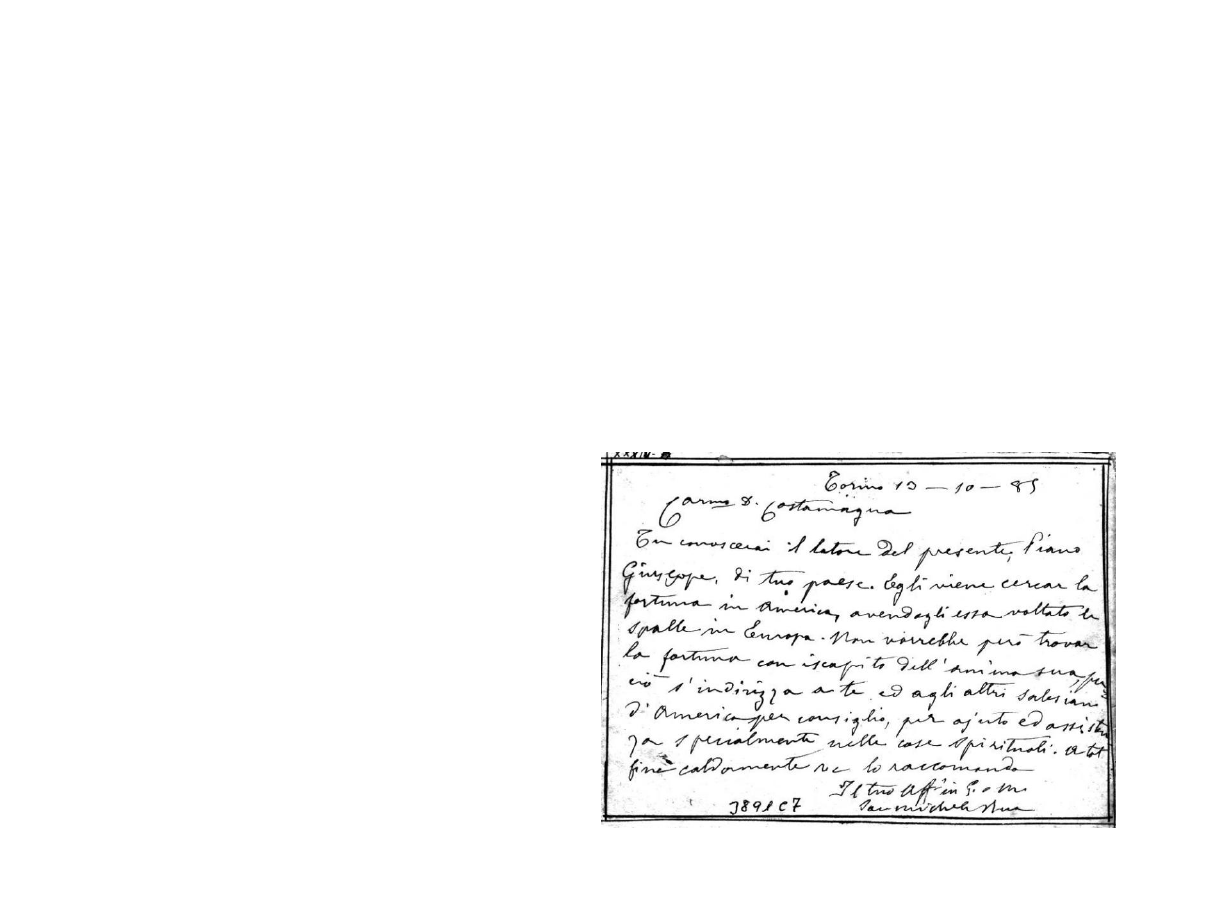 XXXIV-
Torino 13 - 10 - 85
Carmo D. Costamagna
Tu conoscerai il latore del presente, Piano
Giuseppe, di tuo paese. Egli viene cercar la
fortuna in America, avendogli essa voltato le
spalle in Europa. Non vorrebbe però trovar
la fortuna con iscapito dell'anima sua, per
ciò s'indirizza a te ed agli altri Salesiani
d'America per consiglio, per ajuto ed assisten
za specialmente nelle cose spirituali. A tal
fine caldamente ve lo raccomando
Il tuo Aff in G. e M.
Sac Michele Rua
3891 C7